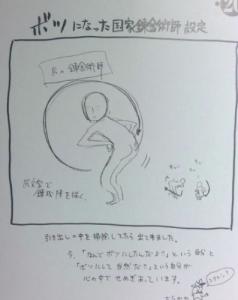 ボツになった国家錬金術師設定
尻の錬金術師
引き出しの中を掃除してたら出て来ました。
今、「なんでボツにしたんだよ!」という自分と
「ボツにして当然だ」という自分が
心の中でせめぎあっています。